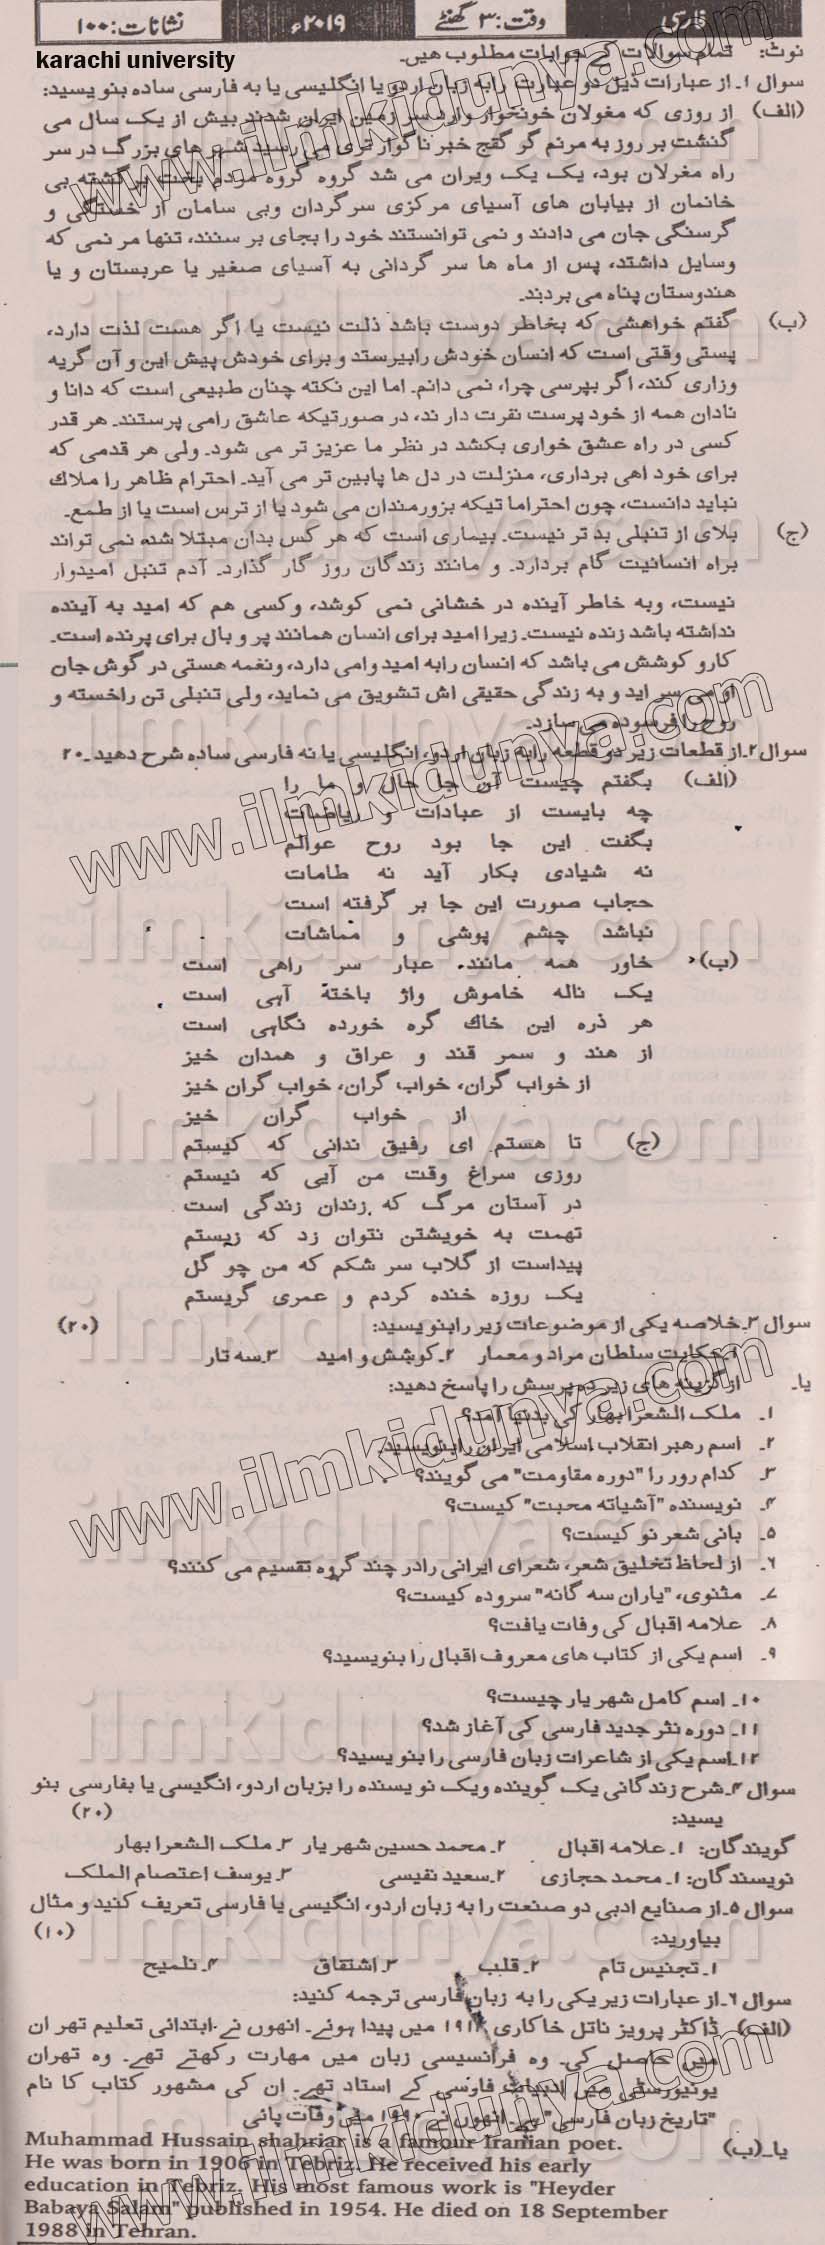 فارسی وقت: ۳ گھنٹے ۲۰۱۹ء نشانات: ۱۰۰
karachi university
نوٹ: تمام سوالات کے جوابات مطلوب ھیں۔
سوال ۱۔ از عبارات ذیل دو عبارت رابه زبان اردو یا انگلیسی یا به فارسی ساده بنو یسید:
(الف) از روزی که مغولان خونخوار وارد سر زمین ایران شدند بیش از یک سال می
گنشت بر روز به مرنم گر گقج خبر ناگوار تری می رسید شهر های بزرگ در سر
راه مغرلان بود، یک یک ویران می شد گروه گروه مردم بخت برگشته بی
خانمان از بیابان های آسیای مرکزی سرگردان وبی سامان از خستگی و
گرسنگی جان می دادند و نمی توانستند خود را بجای بر سنند، تنها مر نمی که
وسایل داشتد، پس از ماه ها سر گردانی به آسیای صغیر یا عربستان و یا
هندوستان پناه می بردند۔
(ب) گفتم خواهشی که بخاطر دوست باشد ذلت نیست یا اگر هست لذت دارد،
پستی وقتی است که انسان خودش رابپرستد و برای خودش پیش این و آن گریه
وزاری کند، اگر بپرسی چرا، نمی دانم۔ اما این نکته چنان طبیعی است که دانا و
نادان همه از خود پرست نفرت دار ند، در صورتیکه عاشق رامی پرستند۔ هر قدر
کسی در راه عشق خواری بکشد در نظر ما عزیز تر می شود۔ ولی هر قدمی که
برای خود اهی برداری، منزلت در دل ها پایین تر می آید۔ احترام ظاهر را ملاك
نباید دانست، چون احتراما تیکه بزورمندان می شود یا از ترس است یا از طمع۔
(ج) بلای از تنبلی بد تر نیست۔ بیماری است که هر کس بدان مبتلا شد نمی تواند
براه انسانیت گام بردارد۔ و مانند زندگان روز گار گذارد۔ آدم تنبل امیدوار
نیست، وبه خاطر آینده در خشانی نمی کوشد، وکسی هم که امید به آینده
نداشته باشد زنده نیست۔ زیرا امید برای انسان همانند پر و بال برای پرنده است۔
کارو کوشش می باشد که انسان رابه امید وامی دارد، ونغمه هستی در گوش جان
او می سر اید و به زندگی حقیقی اش تشویق می نماید، ولی تنبلی تن راخسته و
روح را فرسوده می سازد۔
سوال ۲۔ از قطعات زیر دو قطعه رابه زبان اردو، انگلیسی یا نه فارسی ساده شرح دهید۔ ۲۰
(الف) بگفتم چیست آن جا حال و ما را
چه بایست از عبادات و ریاضات
بگفت این جا بود روح عوالم
نه شیادی بکار آید نه طامات
حجاب صورت این جا بر گرفته است
نباشد چشم پوشی و مماشات
(ب) خاور همه مانند غبار سر راهی است
یک ناله خاموش واژ باخته آهی است
هر ذره این خاك گره خورده نگاهی است
از هند و سمر قند و عراق و همدان خیز
از خواب گران، خواب گران، خواب گران خیز
از خواب گران خیز
(ج) تا هستم ای رفیق ندانی که کیستم
روزی سراغ وقت من آیی که نیستم
در آستان مرگ که زندان زندگی است
تهمت به خویشتن نتوان زد که زیستم
پیداست از گلاب سر شکم که من چو گل
یک روزه خنده کردم و عمری گریستم
سوال ۳۔ خلاصه یکی از موضوعات زیر رابنو یسید: (۲۰)
۱۔ حکایت سلطان مراد و معمار ۲۔ کوشش و امید ۳۔ سه تار
یا۔ از گزینه های زیر ده پرسش را پاسخ دهید:
۱۔ ملک الشعرا بهار کی بدنیا آمد؟
۲۔ اسم رهبر انقلاب اسلامی ایران رابنویسید۔
۳۔ کدام رور را "دوره مقاومت" می گویند؟
۴۔ نویسنده "آشیانه محبت" کیست؟
۵۔ بانی شعر نو کیست؟
۶۔ از لحاظ تخلیق شعر، شعرای ایرانی رادر چند گروه تقسیم می کنند؟
۷۔ مثنوی، "یاران سه گانه" سروده کیست؟
۸۔ علامه اقبال کی وفات یافت؟
۹۔ اسم یکی از کتاب های معروف اقبال را بنویسید؟
۱۰۔ اسم کامل شهر یار چیست؟
۱۱۔ دوره نثر جدید فارسی کی آغاز شد؟
۱۲۔ اسم یکی از شاعرات زبان فارسی را بنو یسید؟
سوال ۴۔ شرح زندگانی یک گوینده ویک نو یسنده را بزبان اردو، انگیسی یا بفارسی بنو
یسید: (۲۰)
گویندگان: ۱۔ علامه اقبال ۲۔ محمد حسین شهر یار ۳۔ ملک الشعرا بهار
نویسندگان: ۱۔ محمد حجازی ۲۔ سعید نفیسی ۳۔ یوسف اعتصام الملک
سوال ۵۔ از صنایع ادبی دو صنعت را به زبان اردو، انگیسی یا فارسی تعریف کنید و مثال
بیاورید: (۱۰)
۱۔ تجنیس تام ۲۔ قلب ۳۔ اشتقاق ۴۔ تلمیح
سوال ۶۔ از عبارات زیر یکی را به زبان فارسی ترجمه کنید:
(الف) ڈاکٹر پرویز ناتل خاکاری میں پیدا ہوئے۔ انھوں نے ابتدائی تعلیم تهر ان
میں حاصل کی۔ وہ فرانسیسی زبان میں مہارت رکھتے تھے۔ وہ تھران
یونیورسٹی میں ادبیات فارسی کے استاد تھے۔ ان کی مشہور کتاب کا نام
"تاریخ زبان فارسی" ہے۔ انھوں نے میں وفات پائی
یا۔ (ب) Muhammad Hussain shahriar is a famous Iranian poet.
He was born in 1906 in Tebriz. He received his early
education in Tebriz. His most famous work is "Heyder
Babaya Salam" published in 1954. He died on 18 September
1988 in Tehran.
www.ilmkidunya.com
ilmkidunya.com